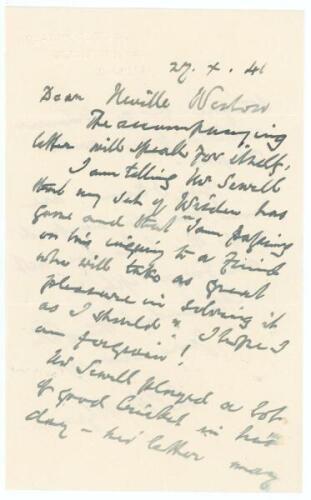 27. X. 41
Dear Neville Weston
The accompanying
letter will speak for itself.
I am telling Mr Sewell
that my set of Wisden has
gone and that "I am passing
on his inquiry to a friend
who will take as great
pleasure in solving it
as I should". I hope I
am forgiven!
Mr Sewell played a lot
of good cricket in his
day - his letter may